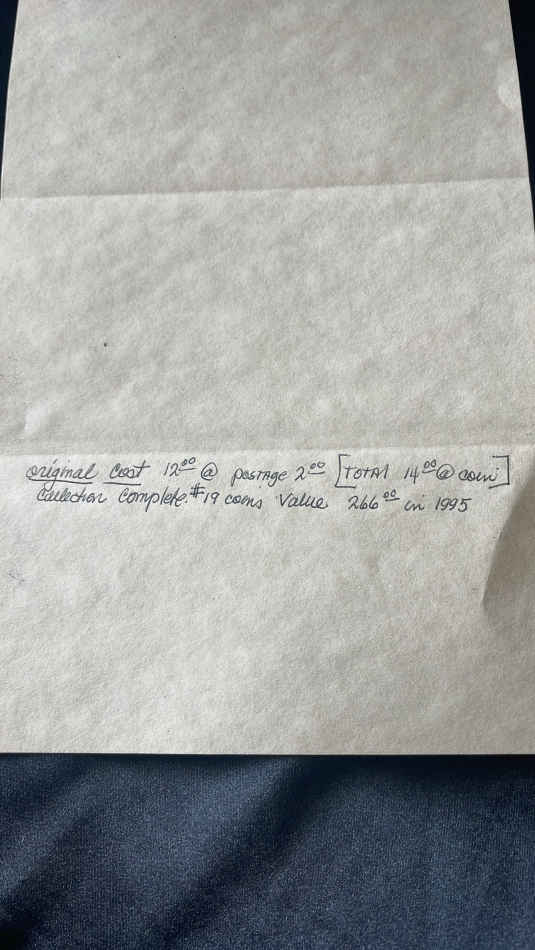 original Cost 12.00 @ postage 2.00 [TOTAL 14.00 @ coin]
Collection Complete. #19 coins Value 266.00 in 1995